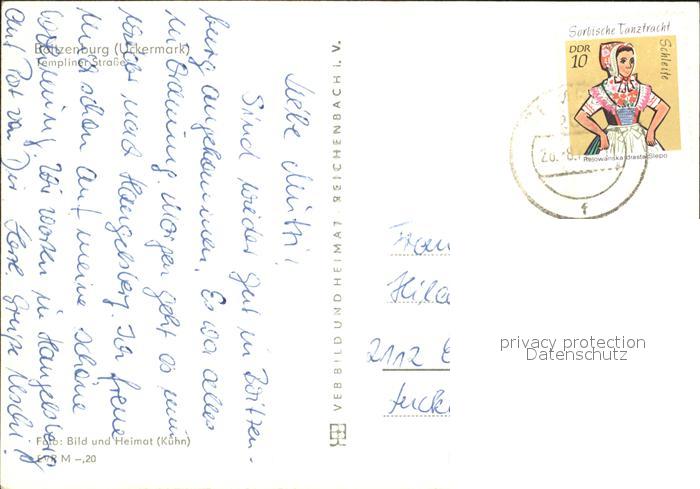 Boitzenburg (Uckermark)
Templiner Straße
Liebe Mutti!
Sind wieder gut in Boitzen-
burg angekommen. Es war alles
in Ordnung. Morgen geht es nun
wieder nach Hangelsberg. Ich freue
mich schon auf meine schöne
Wohnung. Wir waren in Hangelsberg
auf Post von Dir. Herzl. Grüße
Foto: Bild und Heimat (Kühn)
EVP M -,20
VEB BILD UND HEIMAT REICHENBACH I. V.
Sorbische Tanztracht
Schleife
DDR
10
Rejowanska drasta Slepo
f
Frau
2112
privacy protection
Datenschutz